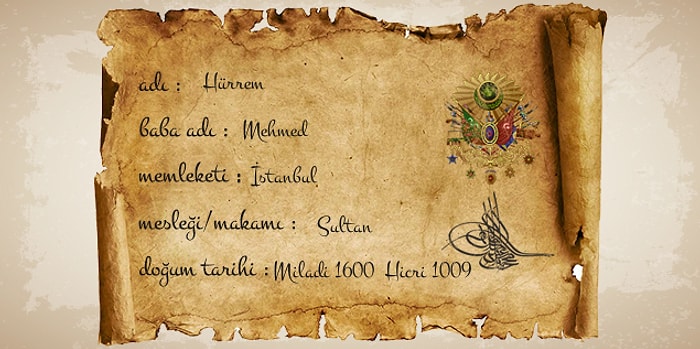 adı : Hürrem
baba adı : Mehmed
memleketi : İstanbul
mesleği/makamı : Sultan
doğum tarihi : Miladi 1600 Hicri 1009